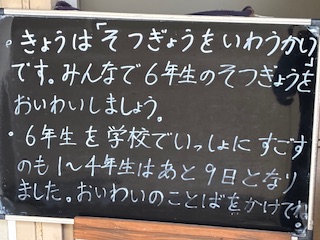 ・きょうは「そつぎょうをいわうかい」
です。みんなで6年生のそつぎょうを
おいわいしましょう。
・6年生を学校でいっしょにすごす
のも1〜4年生はあと9日となり
ました。おいわいのことばをかけてね。